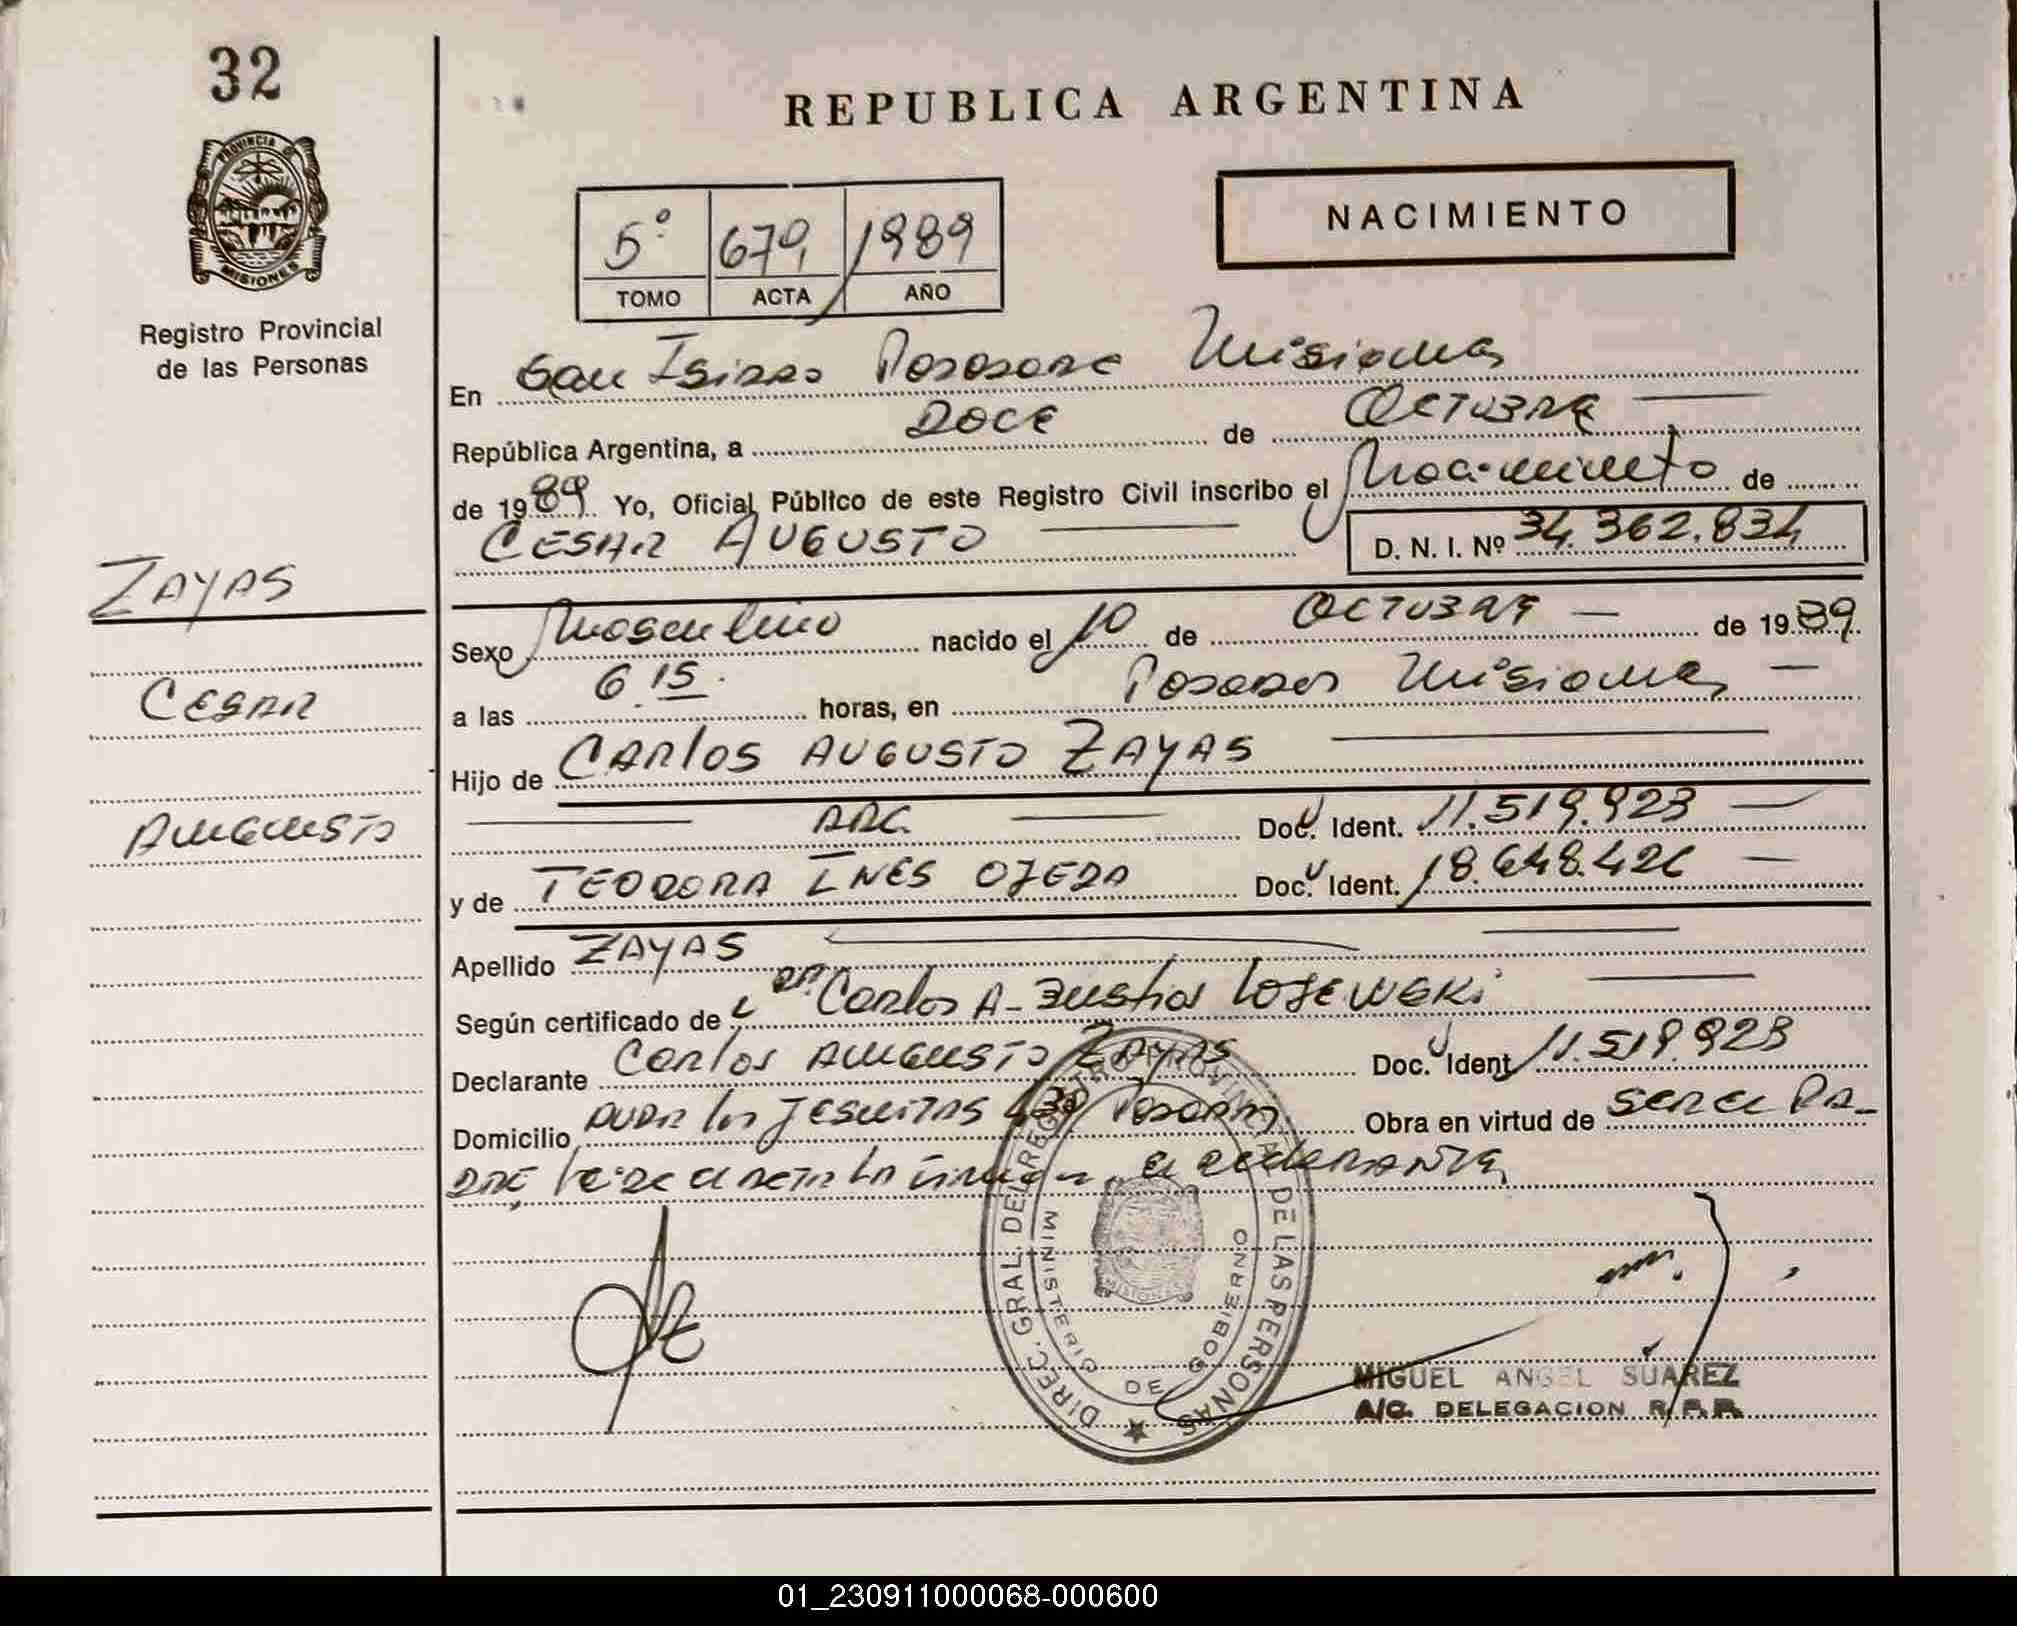 32
REPUBLICA ARGENTINA
PROVINCIA D
MISIONES
Registro Provincial
de las Personas
5º 679 1989
TOMO ACTA AÑO
NACIMIENTO
En San Isidro Posadas Misiones
República Argentina, a DOCE de OCTUBRE
de 1989. Yo, Oficial Público de este Registro Civil inscribo el Nacimiento de
CESAR AUGUSTO
D. N. I. Nº 34.362.834
ZAYAS
CESAR
AUGUSTO
Sexo Masculino nacido el 10 de OCTUBRE de 1989.
a las 6.15. horas, en Posadas Misiones
Hijo de CARLOS AUGUSTO ZAYAS
ARG. Doc. Ident. 11.519.923
y de TEODORA INES OJEDA Doc. Ident. 18.648.426
Apellido ZAYAS
Según certificado de Dr. Carlos A. Bustos LOJEWSKI
Declarante Carlos AUGUSTO ZAYAS Doc. Ident 11.519.923
Domicilio los JESUITAS Posadas Obra en virtud de ser el PA-
DRE, leída el acta la firma el declarante
DIREC. GRAL. DEL REGISTRO PROVINCIAL DE LAS PERSONAS
MINISTERIO DE GOBIERNO
MISIONES
MIGUEL ANGEL SUAREZ
A/C. DELEGACION R.P.P.
01_230911000068-000600